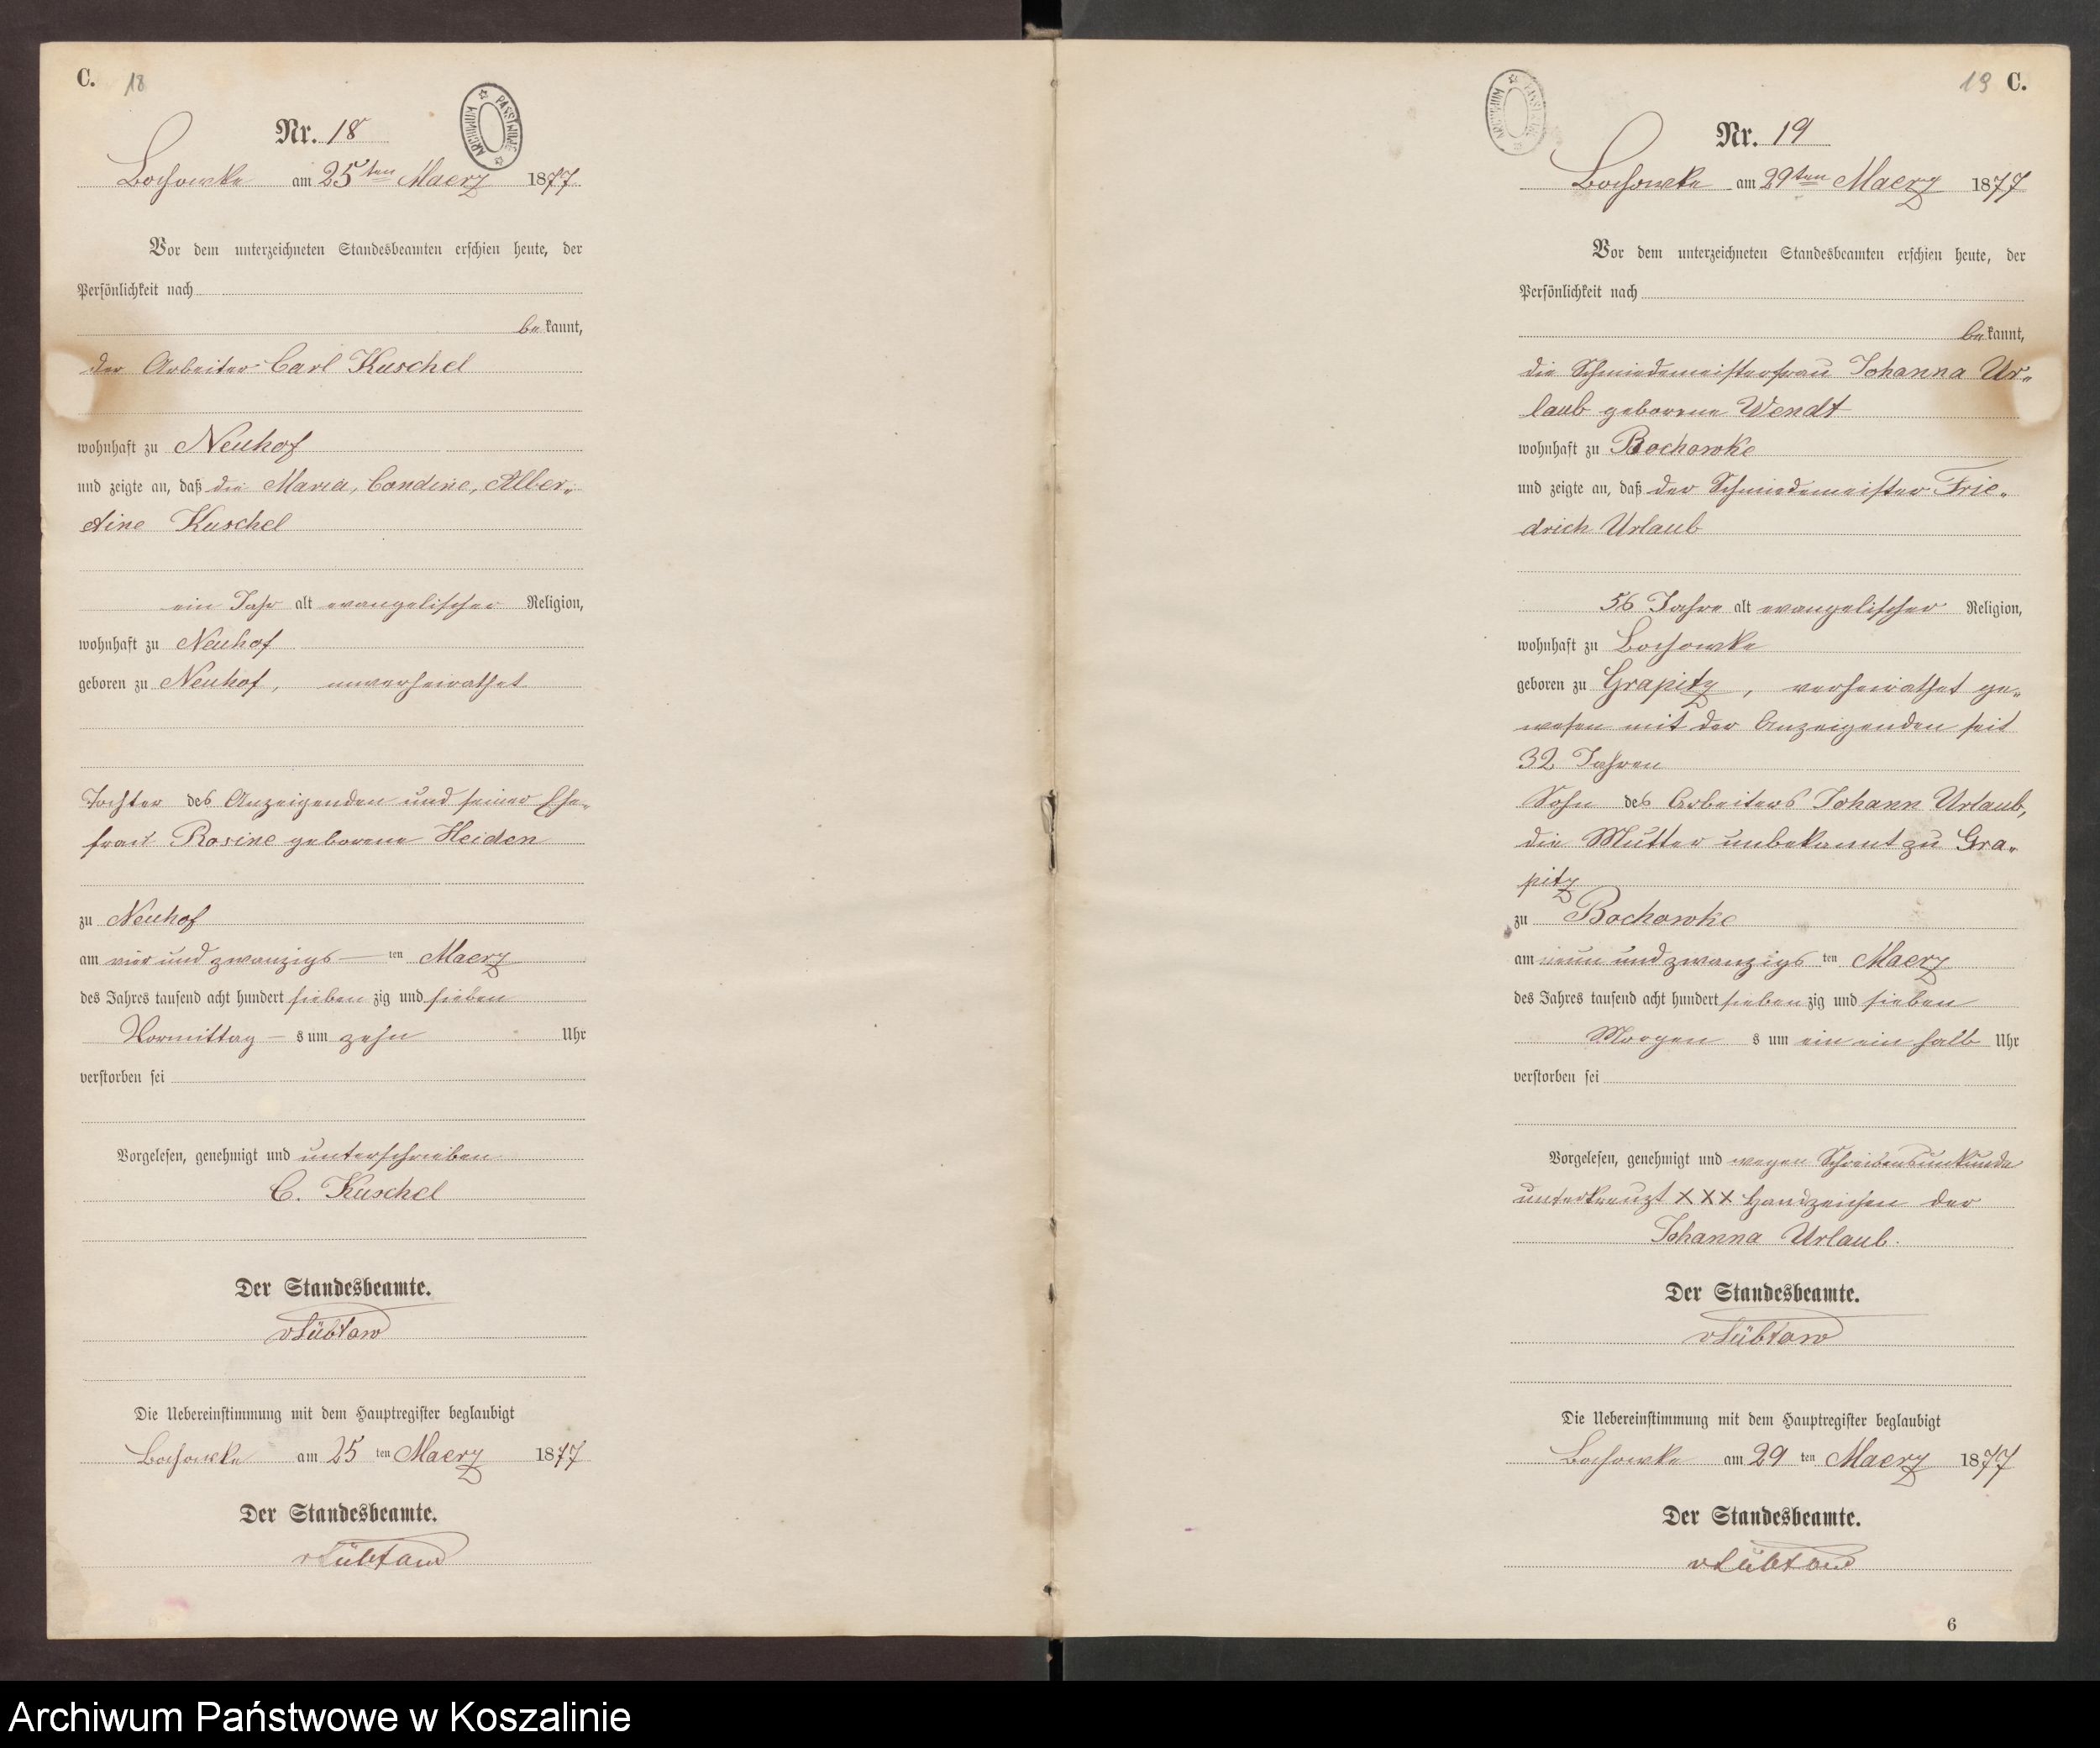 C. 18
ARCHIWUM PAŃSTWOWE
Nr. 18
Bochowke am 25ten Maerz 1877
Vor dem unterzeichneten Standesbeamten erschien heute, der
Persönlichkeit nach
bekannt,
der Arbeiter Carl Kuschel
wohnhaft zu Neuhof
und zeigte an, daß die Maria, Condine, Alber-
tine Kuschel
ein Jahr alt evangelischer Religion,
wohnhaft zu Neuhof
geboren zu Neuhof, unverheirathet
Tochter des Anzeigenden und seiner Ehe-
frau Rosine geborene Heiden
zu Neuhof
am vier und zwanzigs ten Maerz
des Jahres tausend acht hundert sieben zig und sieben
Vormittag s um zehn Uhr
verstorben sei
Vorgelesen, genehmigt und unterschrieben
C. Kuschel
Der Standesbeamte.
vLübtow
Die Uebereinstimmung mit dem Hauptregister beglaubigt
Bochowke am 25 ten Maerz 1877
Der Standesbeamte.
vLübtow
19 C.
ARCHIWUM PAŃSTWOWE
Nr. 19
Bochowke am 29ten Maerz 1877
Vor dem unterzeichneten Standesbeamten erschien heute, der
Persönlichkeit nach
bekannt,
die Schmiedemeisterfrau Johanna Ur-
laub geborene Wendt
wohnhaft zu Bochowke
und zeigte an, daß der Schmiedemeister Frie-
drich Urlaub
56 Jahre alt evangelischer Religion,
wohnhaft zu Bochowke
geboren zu Grapitz, verheirathet ge-
wesen mit der Anzeigenden seit
32 Jahren
Sohn des Arbeiters Johann Urlaub,
die Mutter unbekannt zu Gra-
pitz
zu Bochowke
am neun und zwanzigs ten Maerz
des Jahres tausend acht hundert sieben zig und sieben
Morgen s um ein ein halb Uhr
verstorben sei
Vorgelesen, genehmigt und wegen Schreibensunkunde
unterkreuzt XXX Handzeichen der
Johanna Urlaub.
Der Standesbeamte.
vLübtow
Die Uebereinstimmung mit dem Hauptregister beglaubigt
Bochowke am 29 ten Maerz 1877
Der Standesbeamte.
vLübtow
6
Archiwum Państwowe w Koszalinie